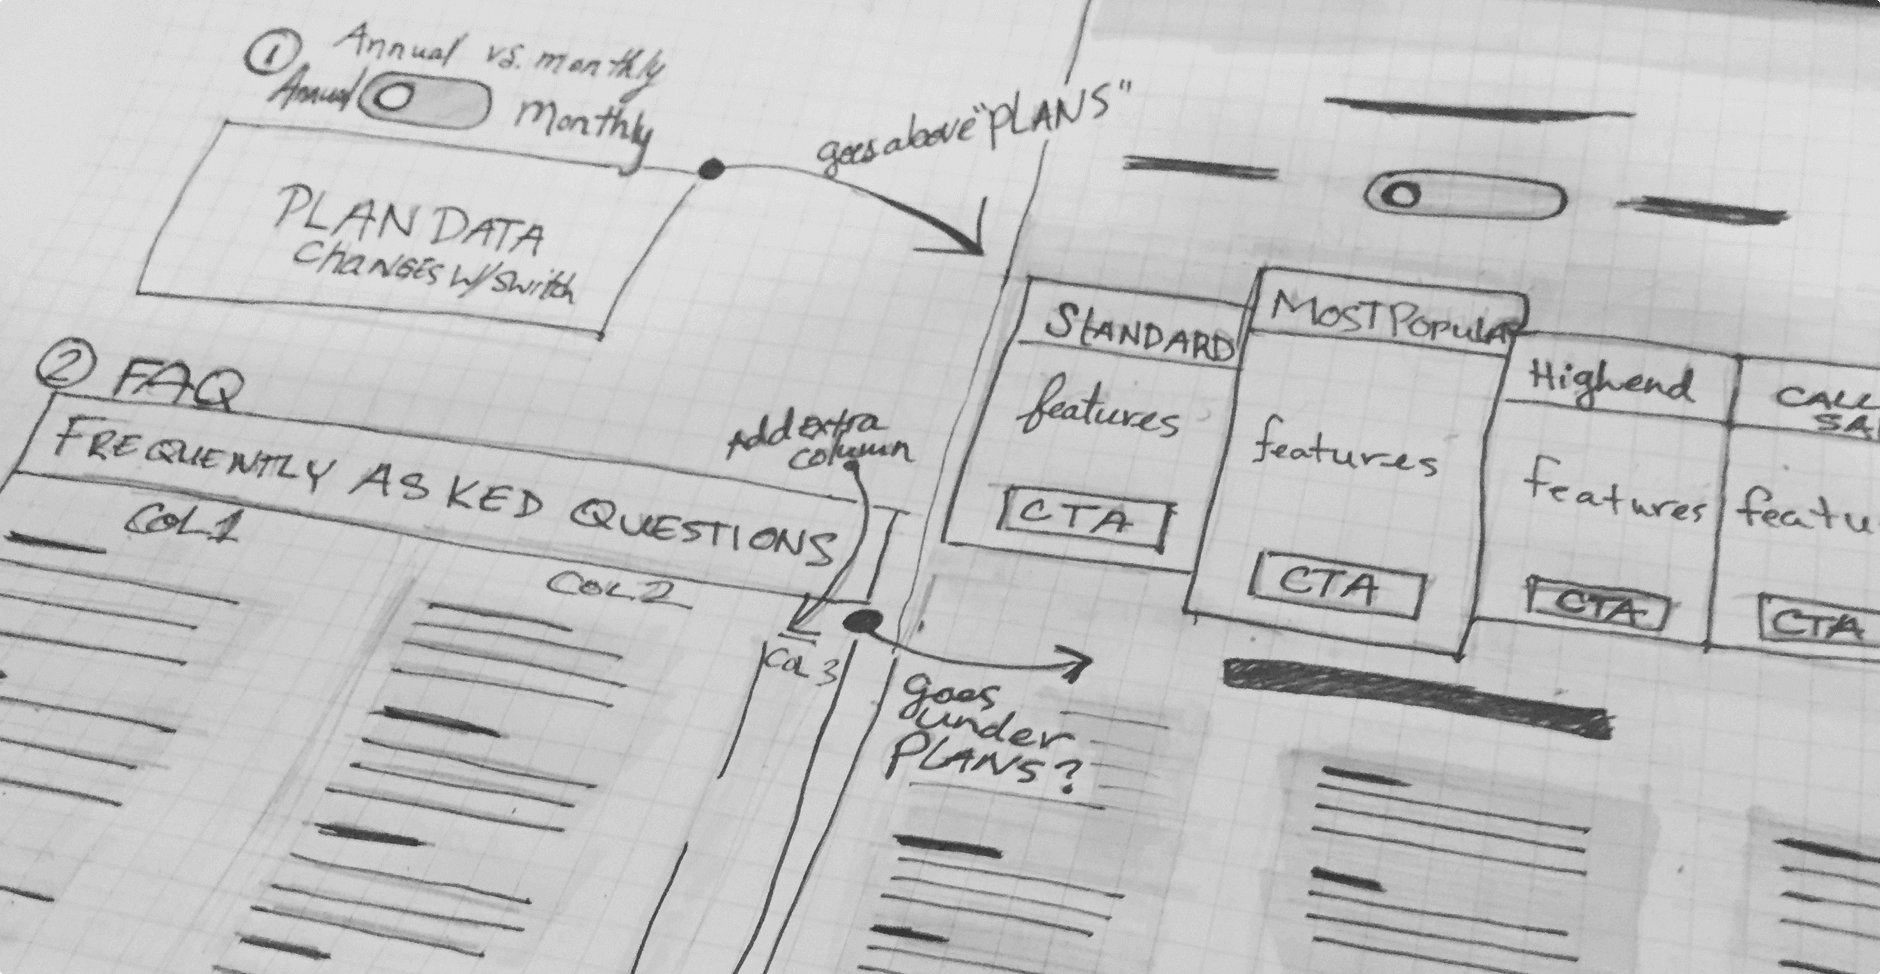 ① Annual vs. monthly
Annual Monthly
PLAN DATA
CHANGES W/ Switch
goes above "PLANS"
② FAQ
FREQUENTLY ASKED QUESTIONS
Add extra
column
COL 1
COL 2
COL 3
goes
under
PLANS?
STANDARD
features
CTA
MOST POPULAR
features
CTA
Highend
features
CTA
CALL
SA
featu
CTA